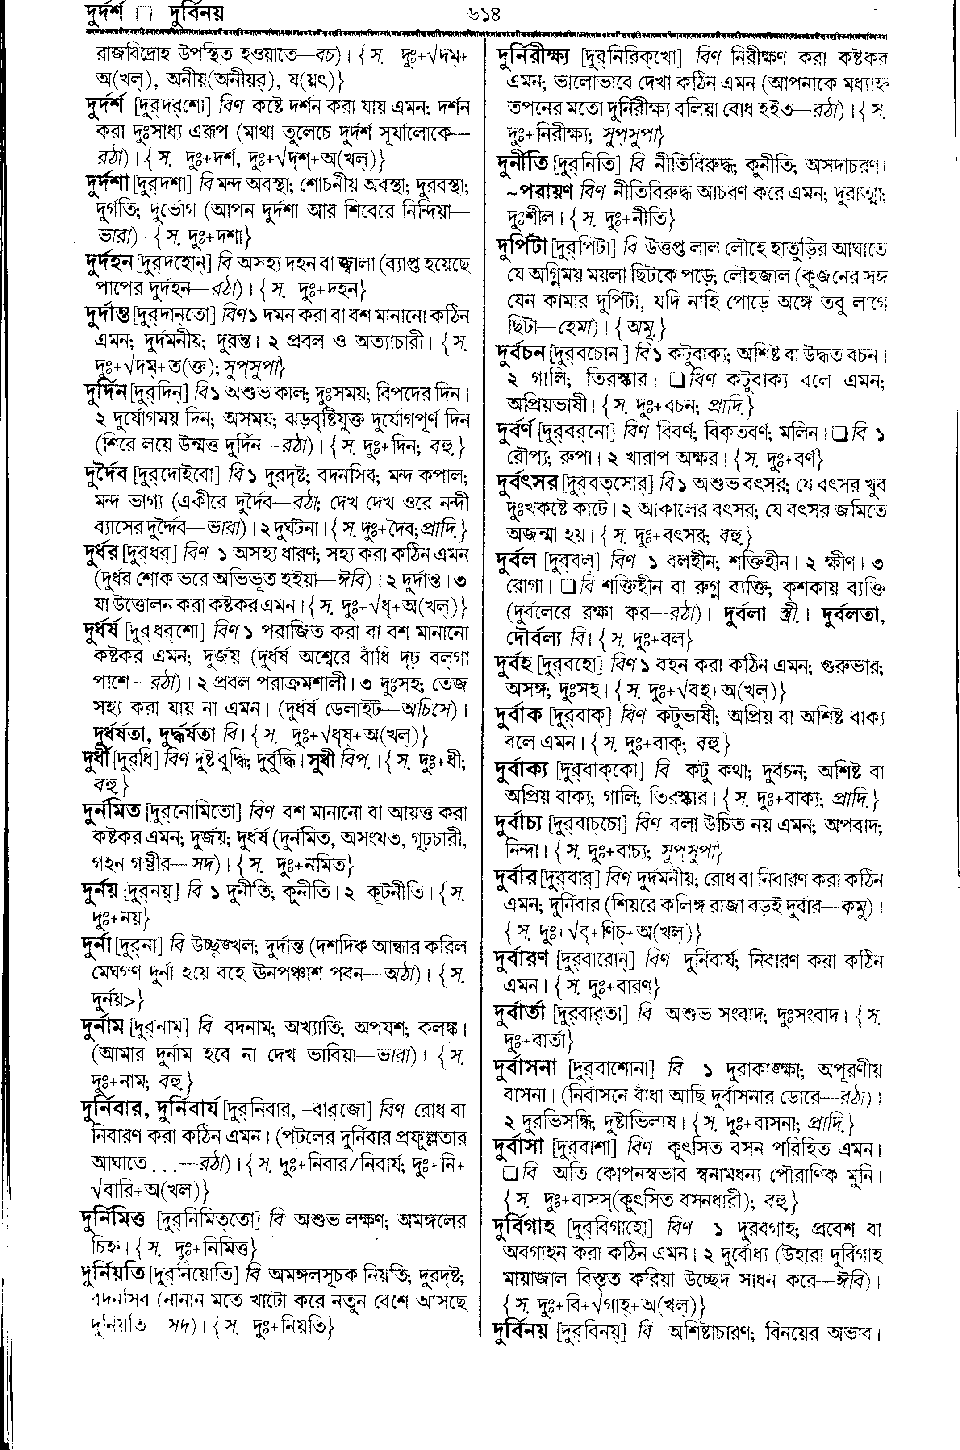 দুর্দর্শ □ দুর্বিনয়
৬১৪
রাজবিদ্রোহ উপস্থিত হওয়াতে—বচ)। {স. দুঃ+√দম্+
অ(খল্), অনীয়(অনীয়র্), য(যৎ)}
দুর্দর্শ [দুর্‌দর্‌শো] বিণ কষ্টে দর্শন করা যায় এমন; দর্শন
করা দুঃসাধ্য এরূপ (মাথা তুলেচে দুর্দর্শ সূর্যালোকে—
রঠা)। {স. দুঃ+দর্শ, দুঃ+√দৃশ্+অ(খল্)}
দুর্দশা [দুর্‌দশা] বি মন্দ অবস্থা; শোচনীয় অবস্থা; দুরবস্থা;
দুর্গতি; দুর্ভোগ (আপন দুর্দশা আর শিবেরে নিন্দিয়া—
ভারা)। {স. দুঃ+দশা}
দুর্দহন [দুর্‌দহোন্] বি অসহ্য দহন বা জ্বালা (ব্যাপ্ত হয়েছে
পাপের দুর্দহন—রঠা)। {স. দুঃ+দহন}
দুর্দান্ত [দুর্‌দান্‌তো] বিণ ১ দমন করা বা বশ মানানো কঠিন
এমন; দুর্দমনীয়; দুরন্ত। ২ প্রবল ও অত্যাচারী। {স.
দুঃ+√দম্+ত(ক্ত); সুপ্‌সুপা}
দুর্দিন [দুর্‌দিন্] বি ১ অশুভ কাল; দুঃসময়; বিপদের দিন।
২ দুর্যোগময় দিন; অসময়; ঝড়বৃষ্টিযুক্ত দুর্যোগপূর্ণ দিন
(শিরে লয়ে উন্মত্ত দুর্দিন—রঠা)। {স. দুঃ+দিন; বহু.}
দুর্দৈব [দুর্‌দোইবো] বি ১ দুরদৃষ্ট; বদনসিব; মন্দ কপাল;
মন্দ ভাগ্য (একীরে দুর্দৈব—রঠা; দেখ দেখ ওরে নন্দী
ব্যাসের দুর্দ্দৈব—ভারা)। ২ দুর্ঘটনা। {স. দুঃ+দৈব; প্রাদি.}
দুর্ধর [দুর্‌ধর্] বিণ ১ অসহ্য ধারণ; সহ্য করা কঠিন এমন
(দুর্ধর শোক ভরে অভিভূত হইয়া—ঈবি)। ২ দুর্দান্ত। ৩
যা উত্তোলন করা কষ্টকর এমন। {স. দুঃ+√ধৃ+অ(খল্)}
দুর্ধর্ষ [দুর্‌ধর্‌শো] বিণ ১ পরাজিত করা বা বশ মানানো
কষ্টকর এমন; দুর্জয় (দুর্ধর্ষ অশ্বেরে বাঁধি দৃঢ় বল্‌গা
পাশে—রঠা)। ২ প্রবল পরাক্রমশালী। ৩ দুঃসহ; তেজ
সহ্য করা যায় না এমন। (দুর্ধর্ষ ডেলাইট—অচিসে)।
দুর্ধর্ষতা, দুর্দ্ধর্ষতা বি। {স. দুঃ+√ধৃষ্+অ(খল্)}
দুর্ধী [দুর্‌ধি] বিণ দুষ্ট বুদ্ধি; দুর্বুদ্ধি। সুধী বিপ.। {স. দুঃ+ধী;
বহু}
দুর্নমিত [দুর্‌নোমিতো] বিণ বশ মানানো বা আয়ত্ত করা
কষ্টকর এমন; দুর্জয়; দুর্ধর্ষ (দুর্নমিত, অসংযত, গূঢ়চারী,
গহন গম্ভীর—সদ)। {স. দুঃ+নমিত}
দুর্নয় [দুর্‌নয়্] বি ১ দুর্নীতি; কুনীতি। ২ কূটনীতি। {স.
দুঃ+নয়}
দুর্না [দুর্‌না] বি উচ্ছৃঙ্খল; দুর্দান্ত (দশদিক আন্ধার করিল
মেঘগণ দুর্না হয়ে বহে ঊনপঞ্চাশ পবন—অঠা)। {স.
দুর্নয়>}
দুর্নাম [দুর্‌নাম্] বি বদনাম; অখ্যাতি; অপযশ; কলঙ্ক।
(আমার দুর্নাম হবে না দেখ ভাবিয়া—ভারা)। {স.
দুঃ+নাম; বহু.}
দুর্নিবার, দুর্নিবার্য [দুর্‌নিবার্, –বার্‌জো] বিণ রোধ বা
নিবারণ করা কঠিন এমন। (পটলের দুর্নিবার প্রফুল্লতার
আঘাতে...—রঠা)। {স. দুঃ+নিবার/নিবার্য; দুঃ+নি+
√বারি+অ(খল)}
দুর্নিমিত্ত [দুর্‌নিমিত্‌তো] বি অশুভ লক্ষণ; অমঙ্গলের
চিহ্ন। {স. দুঃ+নিমিত্ত}
দুর্নিয়তি [দুর্‌নিয়োতি] বি অমঙ্গলসূচক নিয়তি; দুরদৃষ্ট;
বদনসিব (নানান মতে খাটো করে নতুন বেশে আসছে
দুর্নিয়তি—সদ)। {স. দুঃ+নিয়তি}
দুর্নিরীক্ষ্য [দুর্‌নিরিক্‌খো] বিণ নিরীক্ষণ করা কষ্টকর
এমন; ভালোভাবে দেখা কঠিন এমন (আপনাকে মধ্যাহ্ন
তপনের মতো দুর্নিরীক্ষ্য বলিয়া বোধ হইত—রঠা)। {স.
দুঃ+নিরীক্ষ্য; সুপ্‌সুপা}
দুর্নীতি [দুর্‌নিতি] বি নীতিবিরুদ্ধ; কুনীতি; অসদাচরণ।
~পরায়ণ বিণ নীতিবিরুদ্ধ আচরণ করে এমন; দুরাত্মা;
দুঃশীল। {স. দুঃ+নীতি}
দুর্পিটা [দুর্‌পিটা] বি উত্তপ্ত লাল লৌহে হাতুড়ির আঘাতে
যে অগ্নিময় ময়লা ছিটকে পড়ে; লৌহজাল (কুজনের সঙ্গ
যেন কামার দুর্পিটা, যদি নাহি পোড়ে অঙ্গে তবু লাগে
ছিটা—হেমা)। {অমূ.}
দুর্বচন [দুর্‌বচোন্] বি ১ কটুবাক্য; অশিষ্ট বা উদ্ধত বচন।
২ গালি; তিরস্কার। □ বিণ কটুবাক্য বলে এমন;
অপ্রিয়ভাষী। {স. দুঃ+বচন; প্রাদি.}
দুর্বর্ণ [দুর্‌বর্‌নো] বিণ বিবর্ণ; বিকৃতবর্ণ; মলিন। □ বি ১
রৌপ্য; রুপা। ২ খারাপ অক্ষর। {স. দুঃ+বর্ণ}
দুর্বৎসর [দুর্‌বত্‌সোর্] বি ১ অশুভ বৎসর; যে বৎসর খুব
দুঃখকষ্টে কাটে। ২ আকালের বৎসর; যে বৎসর জমিতে
অজন্মা হয়। {স. দুঃ+বৎসর; বহু}
দুর্বল [দুর্‌বল্] বিণ ১ বলহীন; শক্তিহীন। ২ ক্ষীণ। ৩
রোগা। □ বি শক্তিহীন বা রুগ্ন ব্যক্তি; কৃশকায় ব্যক্তি
(দুর্বলেরে রক্ষা কর—রঠা)। দুর্বলা স্ত্রী.। দুর্বলতা,
দৌর্বল্য বি। {স. দুঃ+বল}
দুর্বহ [দুর্‌বহো] বিণ ১ বহন করা কঠিন এমন; গুরুভার;
অসহ্য; দুঃসহ। {স. দুঃ+√বহ্+অ(খল্)}
দুর্বাক [দুর্‌বাক্] বিণ কটুভাষী; অপ্রিয় বা অশিষ্ট বাক্য
বলে এমন। {স. দুঃ+বাক্; বহু}
দুর্বাক্য [দুর্‌বাক্‌কো] বি কটু কথা; দুর্বচন; অশিষ্ট বা
অপ্রিয় বাক্য; গালি; তিরস্কার। {স. দুঃ+বাক্য; প্রাদি.}
দুর্বাচ্য [দুর্‌বাচ্‌চো] বিণ বলা উচিত নয় এমন; অপবাদ;
নিন্দা। {স. দুঃ+বাচ্য; সুপ্‌সুপা}
দুর্বার [দুর্‌বার্] বিণ দুর্দমনীয়; রোধ বা নিবারণ করা কঠিন
এমন; দুর্নিবার (শিয়রে কলিঙ্গ রাজা বড়ই দুর্বার—কমু)।
{স. দুঃ+√বৃ+ণিচ্+অ(খল্)}
দুর্বারণ [দুর্‌বারোন্] বিণ দুর্নিবার্য; নিবারণ করা কঠিন
এমন। {স. দুঃ+বারণ}
দুর্বার্তা [দুর্‌বার্‌তা] বি অশুভ সংবাদ; দুঃসংবাদ। {স.
দুঃ+বার্তা}
দুর্বাসনা [দুর্‌বাশোনা] বি ১ দুরাকাঙ্ক্ষা; অপূরণীয়
বাসনা। (নির্বাসনে বাঁধা আছি দুর্বাসনার ডোরে—রঠা)।
২ দুরভিসন্ধি; দুষ্টাভিলাষ। {স. দুঃ+বাসনা; প্রাদি.}
দুর্বাসা [দুর্‌বাশা] বিণ কুৎসিত বসন পরিহিত এমন।
□ বি অতি কোপনস্বভাব স্বনামধন্য পৌরাণিক মুনি।
{স. দুঃ+বাসস্(কুৎসিত বসনধারী); বহু}
দুর্বিগাহ [দুর্‌বিগাহো] বিণ ১ দুরবগাহ; প্রবেশ বা
অবগাহন করা কঠিন এমন। ২ দুর্বোধ্য (উহারা দুর্বিগাহ
মায়াজাল বিস্তৃত করিয়া উচ্ছেদ সাধন করে—ঈবি)।
{স. দুঃ+বি+√গাহ্+অ(খল্)}
দুর্বিনয় [দুর্‌বিনয়্] বি অশিষ্টাচারণ; বিনয়ের অভাব।